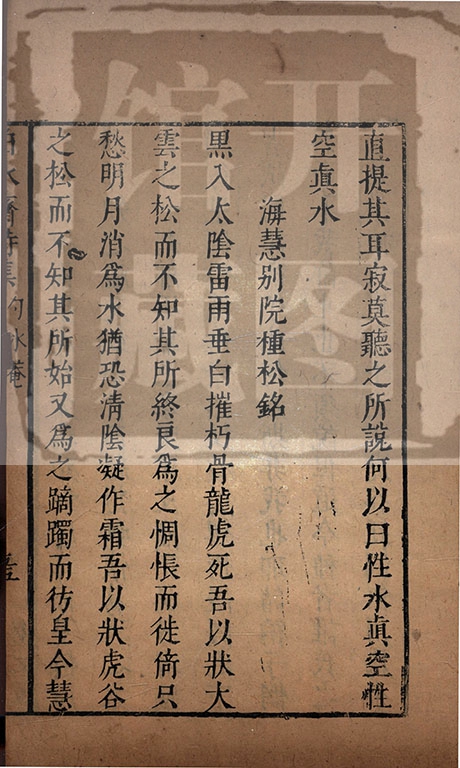 直提其耳寂莫聽之所說何以曰性水眞空性
空眞水
海慧別院種松銘
黑入太陰雷雨垂白摧朽骨龍虎死吾以狀大
雲之松而不知其所終良爲之惆悵而徙倚只
愁明月消爲水猶恐清陰凝作霜吾以狀虎谷
之松而不知其所始又爲之蹢躅而彷皇今慧
開
圖
館
藏